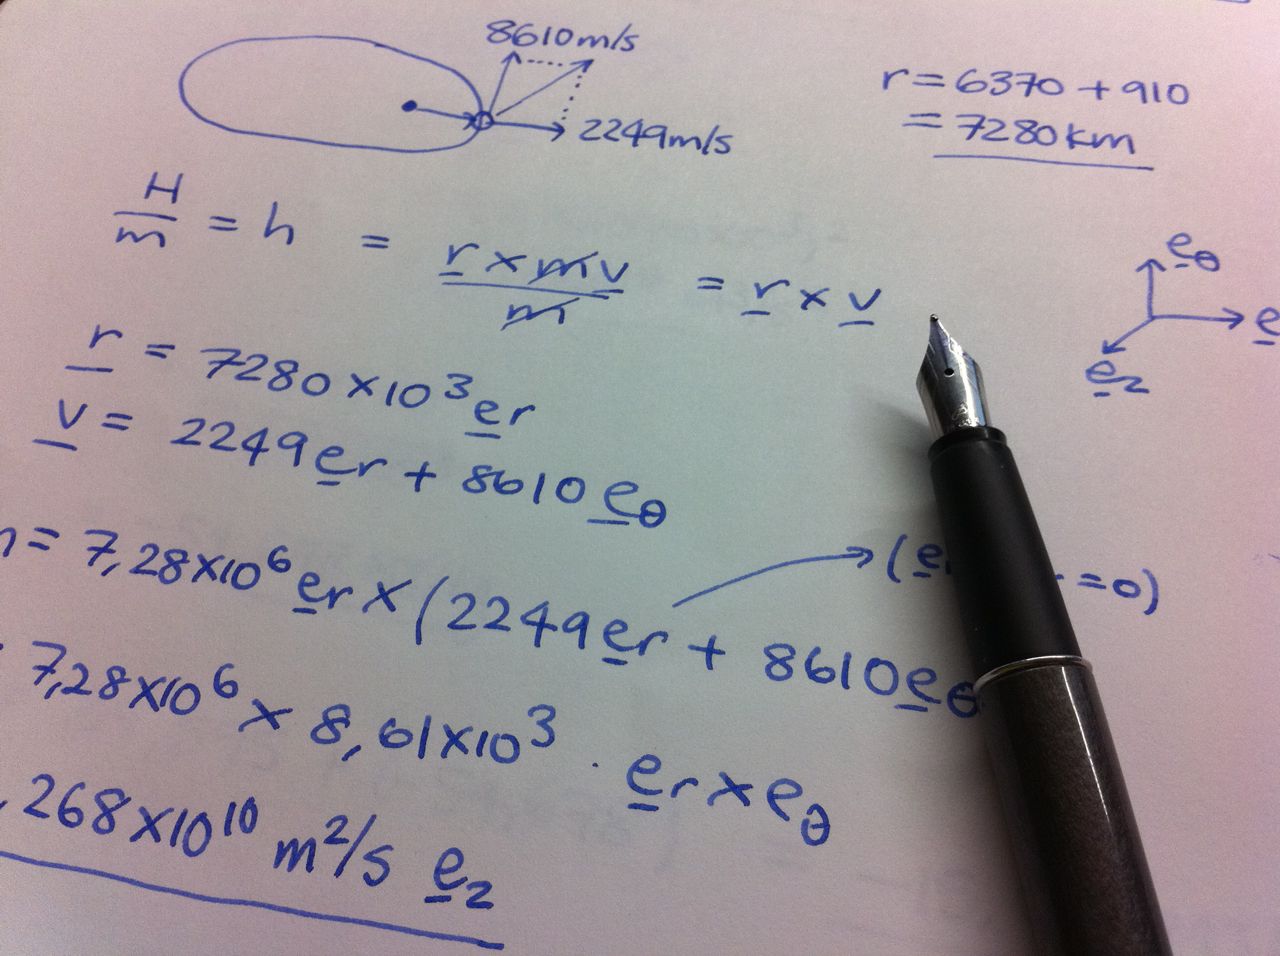 8610m/s
2249m/s
r = 6370 + 910
= 7280 km
H/m = h = r × mv / m = r × v
e_θ
e
e_z
r = 7280 × 10³ e_r
v = 2249 e_r + 8610 e_θ
= 7,28×10⁶ e_r × (2249 e_r + 8610 e_θ
(e = 0)
7,28×10⁶ × 8,61×10³ · e_r × e_θ
268×10¹⁰ m²/s e_z